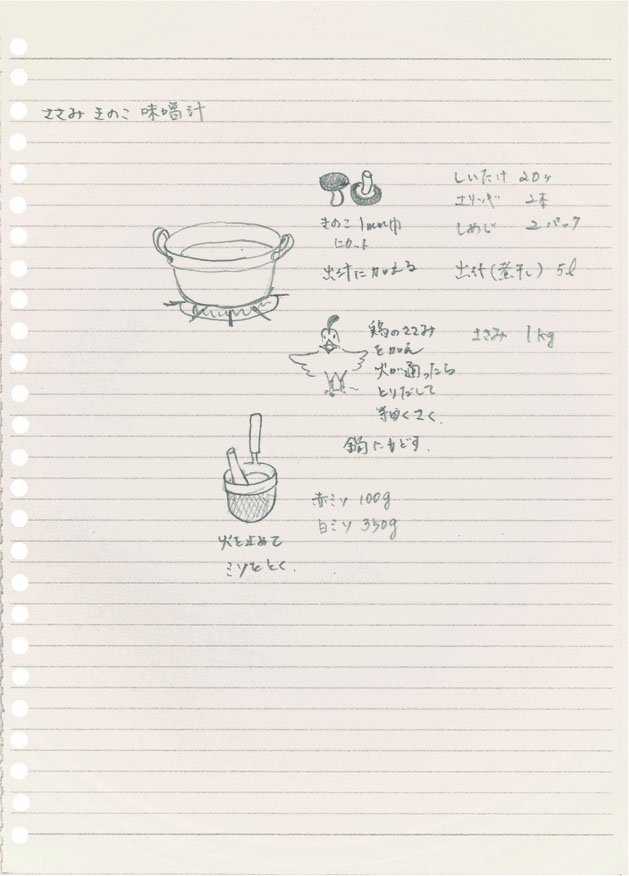 ささみ きのこ 味噌汁
しいたけ 20ヶ
エリンギ 2本
しめじ 2パック
きのこ 1mm巾
にカット
出汁に加える
出汁(煮干し) 5ℓ
鶏のささみ
を加え
火が通ったら
とりだして
細くさく.
ささみ 1kg
鍋にもどす.
赤ミソ 100g
白ミソ 350g
火を止めて
ミソをとく.